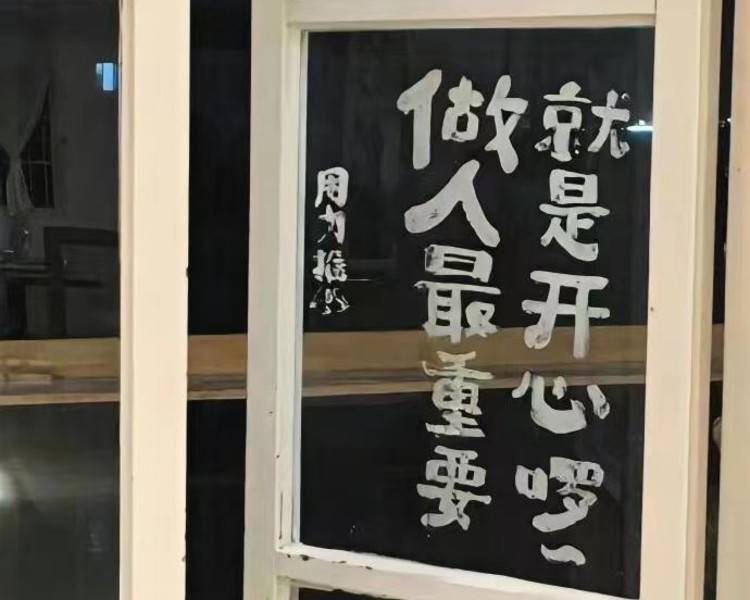 用力
做人最重要
就是开心啰~